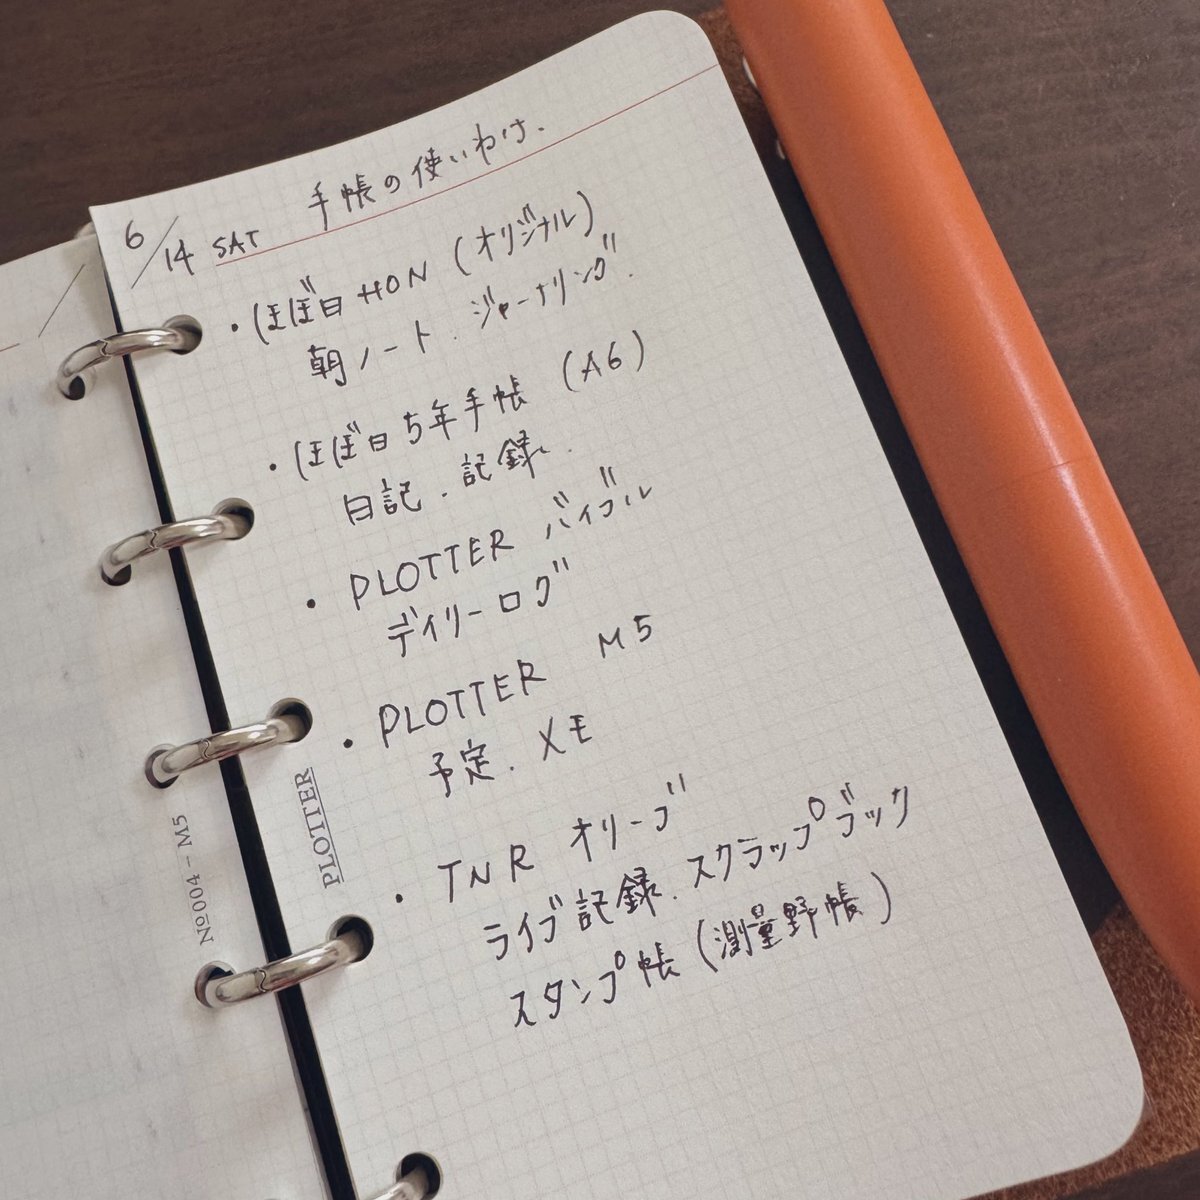 6/14 SAT 手帳の使いわけ.
・ほぼ日HON (オリジナル)
朝ノート.ジャーナリング.
・ほぼ日5年手帳 (A6)
日記.記録.
・PLOTTER バイブル
デイリーログ
・PLOTTER M5
予定.メモ
・TNR オリーブ
ライブ記録.スクラップブック
スタンプ帳(測量野帳)
PLOTTER
№004 - M5